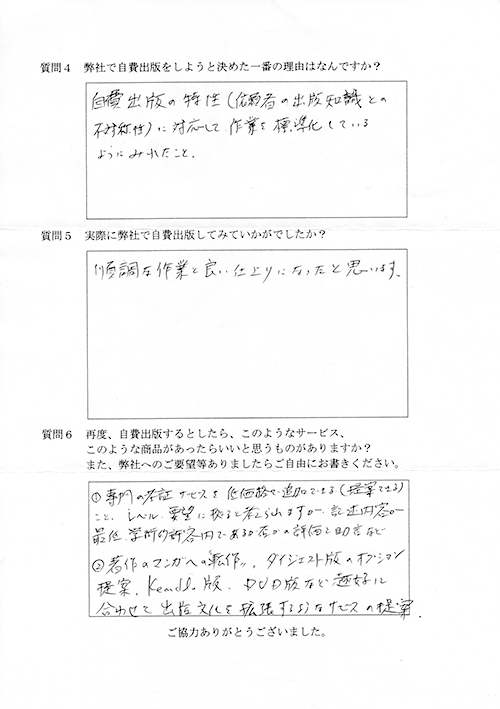 質問４　弊社で自費出版をしようと決めた一番の理由はなんですか？
自費出版の特性（依頼者の出版知識との
不対称性）に対応して作業を標準化している
ようにみれたこと、
質問５　実際に弊社で自費出版してみていかがでしたか？
順調な作業と良い仕上りになったと思います。
質問６　再度、自費出版するとしたら、このようなサービス、
このような商品があったらいいと思うものがありますか？
また、弊社へのご要望等ありましたらご自由にお書きください。
①専門の サービスを低価格で追加できる（提案できる）
こと、レベル、要望に よると考えられますが、記述内容が
最低、学術的許容内であるか否かの評価と助言など
②著作のマンガへの転作、ダイジェスト版のオプション
提案、 版、DVD版など趣好に
合わせて出版文化を拡張するようなサービスの提案
ご協力ありがとうございました。